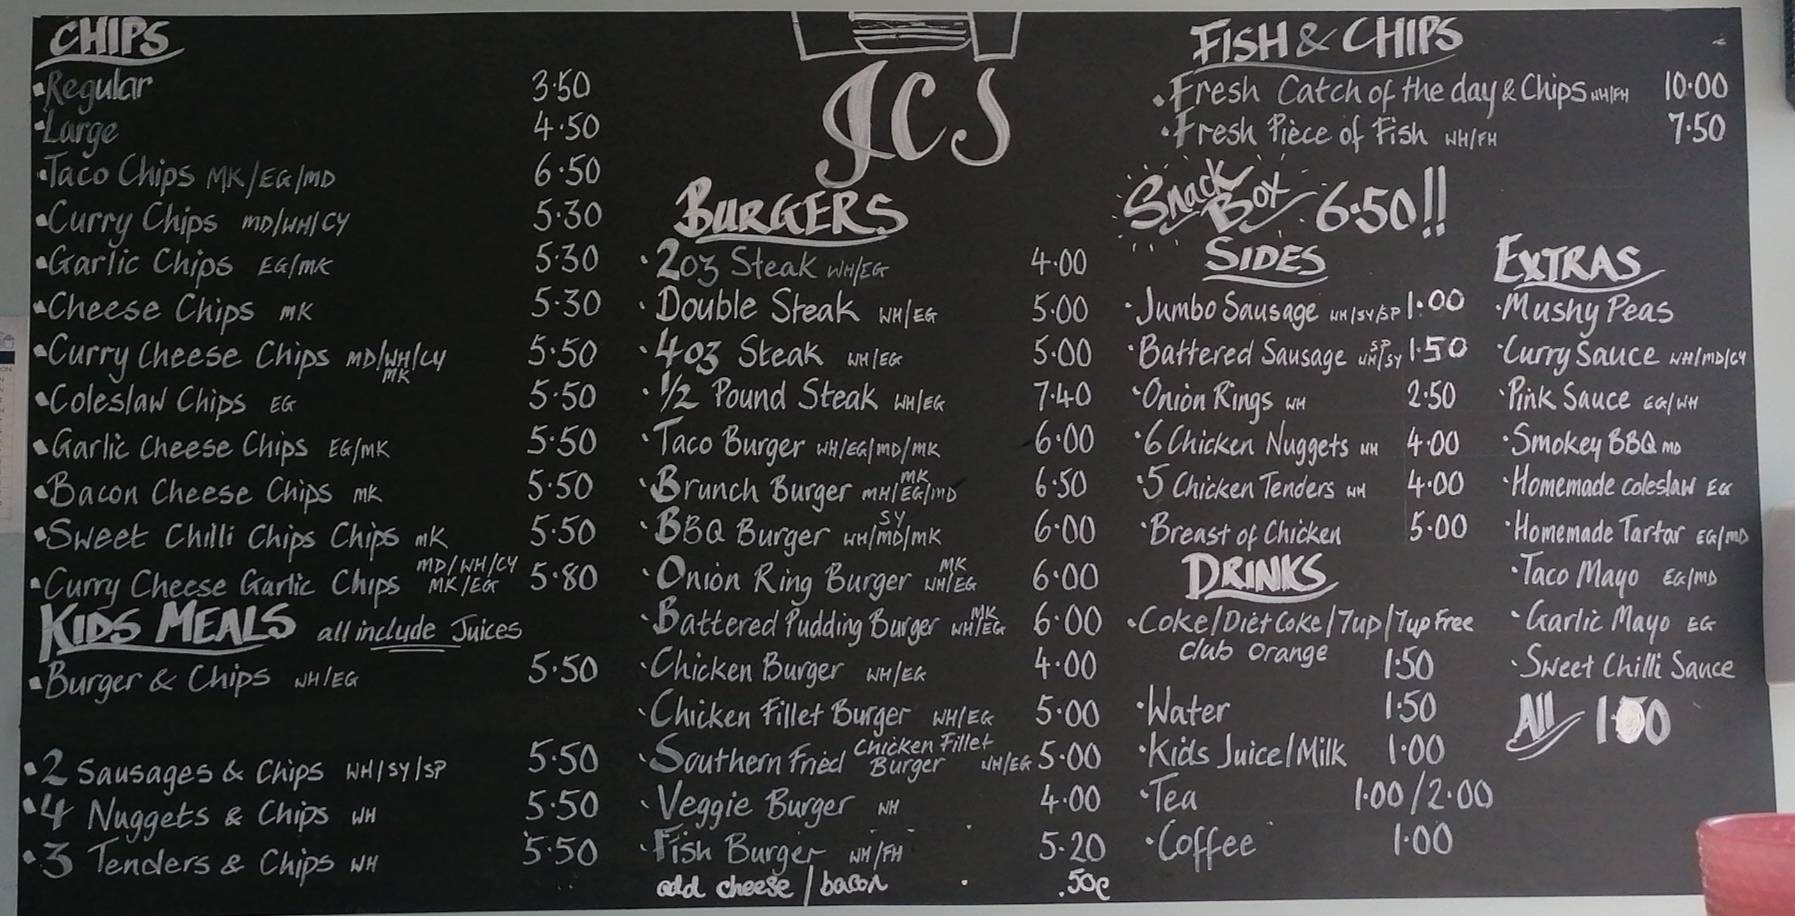 CHIPS
•Regular 3·50
•Large 4·50
•Taco Chips MK/EG/MD 6·50
•Curry Chips MD/WH/CY 5·30
•Garlic Chips EG/MK 5·30
•Cheese Chips MK 5·30
•Curry Cheese Chips MD/WH/CY MK 5·50
•Coleslaw Chips EG 5·50
•Garlic Cheese Chips EG/MK 5·50
•Bacon Cheese Chips MK 5·50
•Sweet Chilli Chips Chips MK 5·50
•Curry Cheese Garlic Chips MD/WH/CY MK/EG 5·80
KIDS MEALS all include Juices
•Burger & Chips WH/EG 5·50
•2 Sausages & Chips WH/SY/SP 5·50
•4 Nuggets & Chips WH 5·50
•3 Tenders & Chips WH 5·50
JCS
BURGERS
•2oz Steak WH/EG 4·00
•Double Steak WH/EG 5·00
•4oz Steak WH/EG 5·00
•1/2 Pound Steak WH/EG 7·40
•Taco Burger WH/EG/MD/MK 6·00
•Brunch Burger MH/EG/MD MK 6·50
•BBQ Burger WH/MD/MK SY 6·00
•Onion Ring Burger WH/EG MK 6·00
•Battered Pudding Burger WH/EG MK 6·00
•Chicken Burger WH/EG 4·00
•Chicken Fillet Burger WH/EG 5·00
•Southern Fried Chicken Fillet Burger WH/EG 5·00
•Veggie Burger WH 4·00
•Fish Burger WH/FH 5·20
add cheese / bacon .50c
FISH & CHIPS
•Fresh Catch of the day & Chips WH/FH 10·00
•Fresh Piece of Fish WH/FH 7·50
Snack Box 6·50!!
SIDES
•Jumbo Sausage WH/SY/SP 1·00
•Battered Sausage WH/SY SP 1·50
•Onion Rings WH 2·50
•6 Chicken Nuggets WH 4·00
•5 Chicken Tenders WH 4·00
•Breast of Chicken 5·00
DRINKS
•Coke/Diet Coke/7up/7up Free
Club Orange 1·50
•Water 1·50
•Kids Juice/Milk 1·00
•Tea 1·00/2·00
•Coffee 1·00
EXTRAS
•Mushy Peas
•Curry Sauce WH/MD/CY
•Pink Sauce EG/WH
•Smokey BBQ MD
•Homemade coleslaw EG
•Homemade Tartar EG/MD
•Taco Mayo EG/MD
•Garlic Mayo EG
•Sweet Chilli Sauce
All 1·00